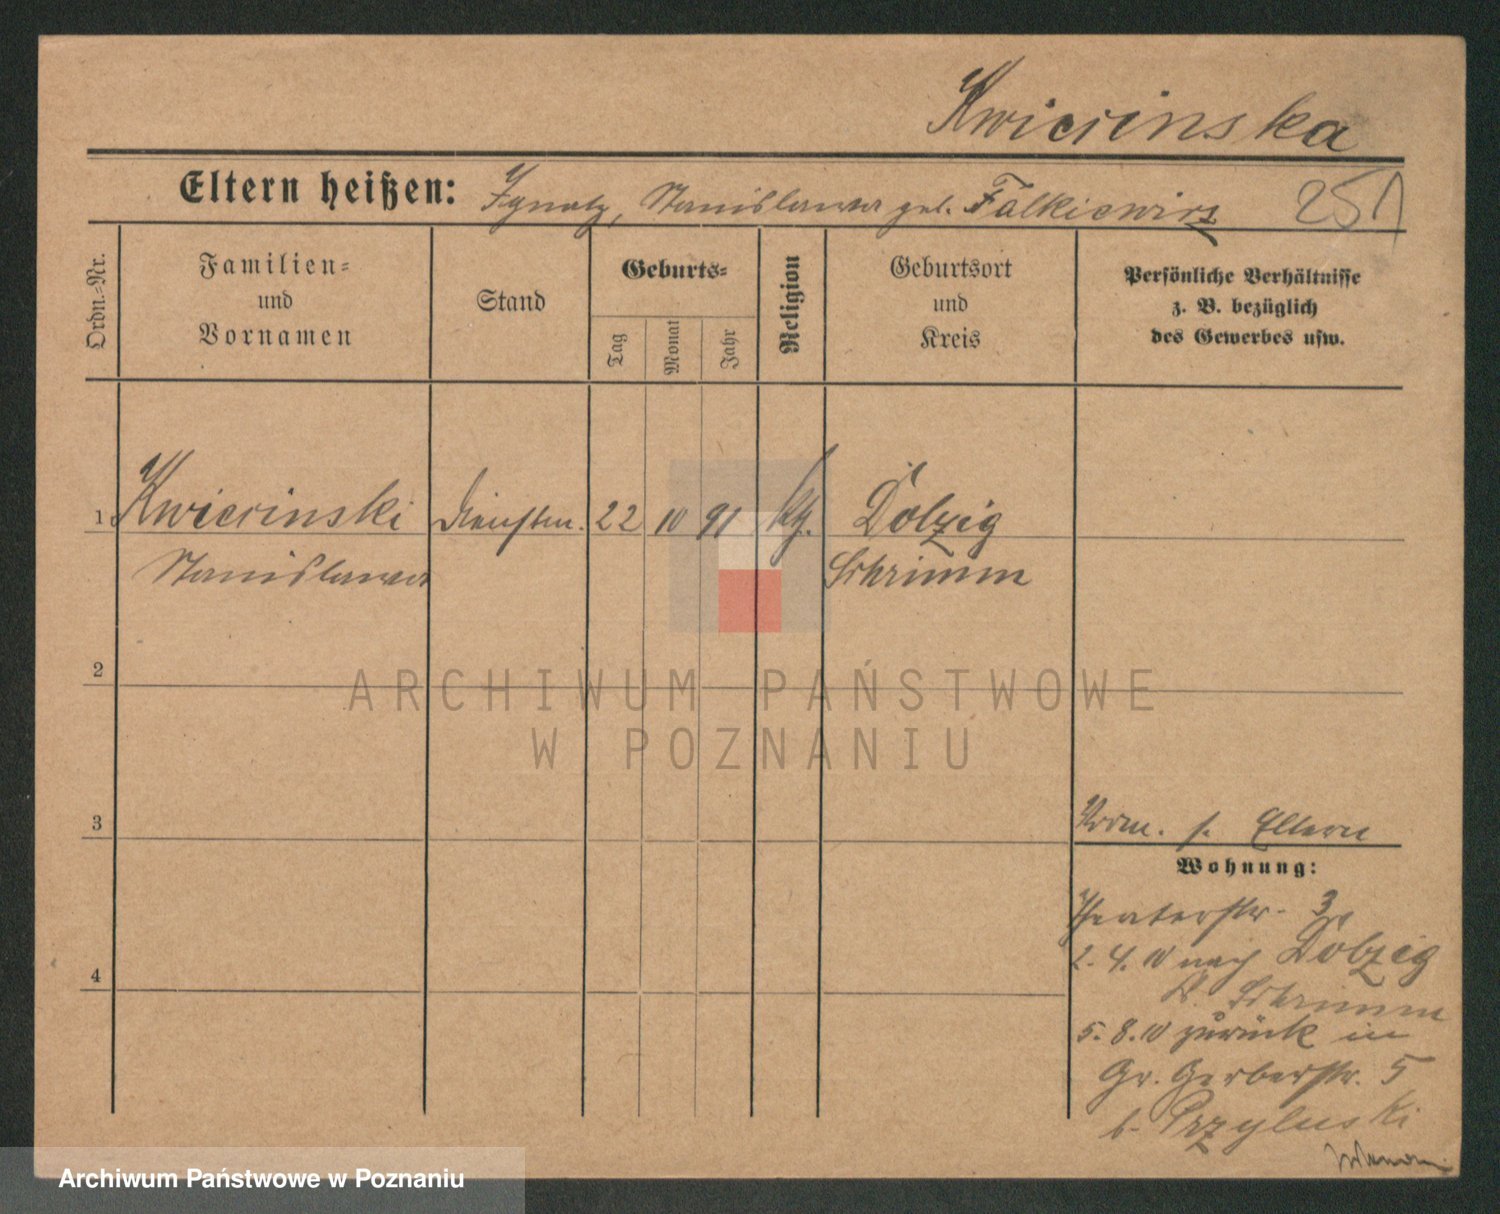 Kwiecinska
Eltern heißen: Ignatz, Stanislawa geb. Falkiewicz 251
Ordn.-Nr.
Familien-
und
Vornamen
Stand
Geburts-
Tag
Monat
Jahr
Religion
Geburtsort
und
Kreis
Persönliche Verhältnisse
z. B. bezüglich
des Gewerbes usw.
1 Kwiecinski Dienstm. 22 10 91 kth. Dolzig
Stanislawa Schrimm
2
ARCHIWUM PAŃSTWOWE
W POZNANIU
3
Eltern
Wohnung:
Theaterstr. 3
2. 4. 10 nach Dolzig
K. Schrimm
5. 8. 10 zurück in
Gr. Gerberstr. 5
b. Przyluski
4
Archiwum Państwowe w Poznaniu